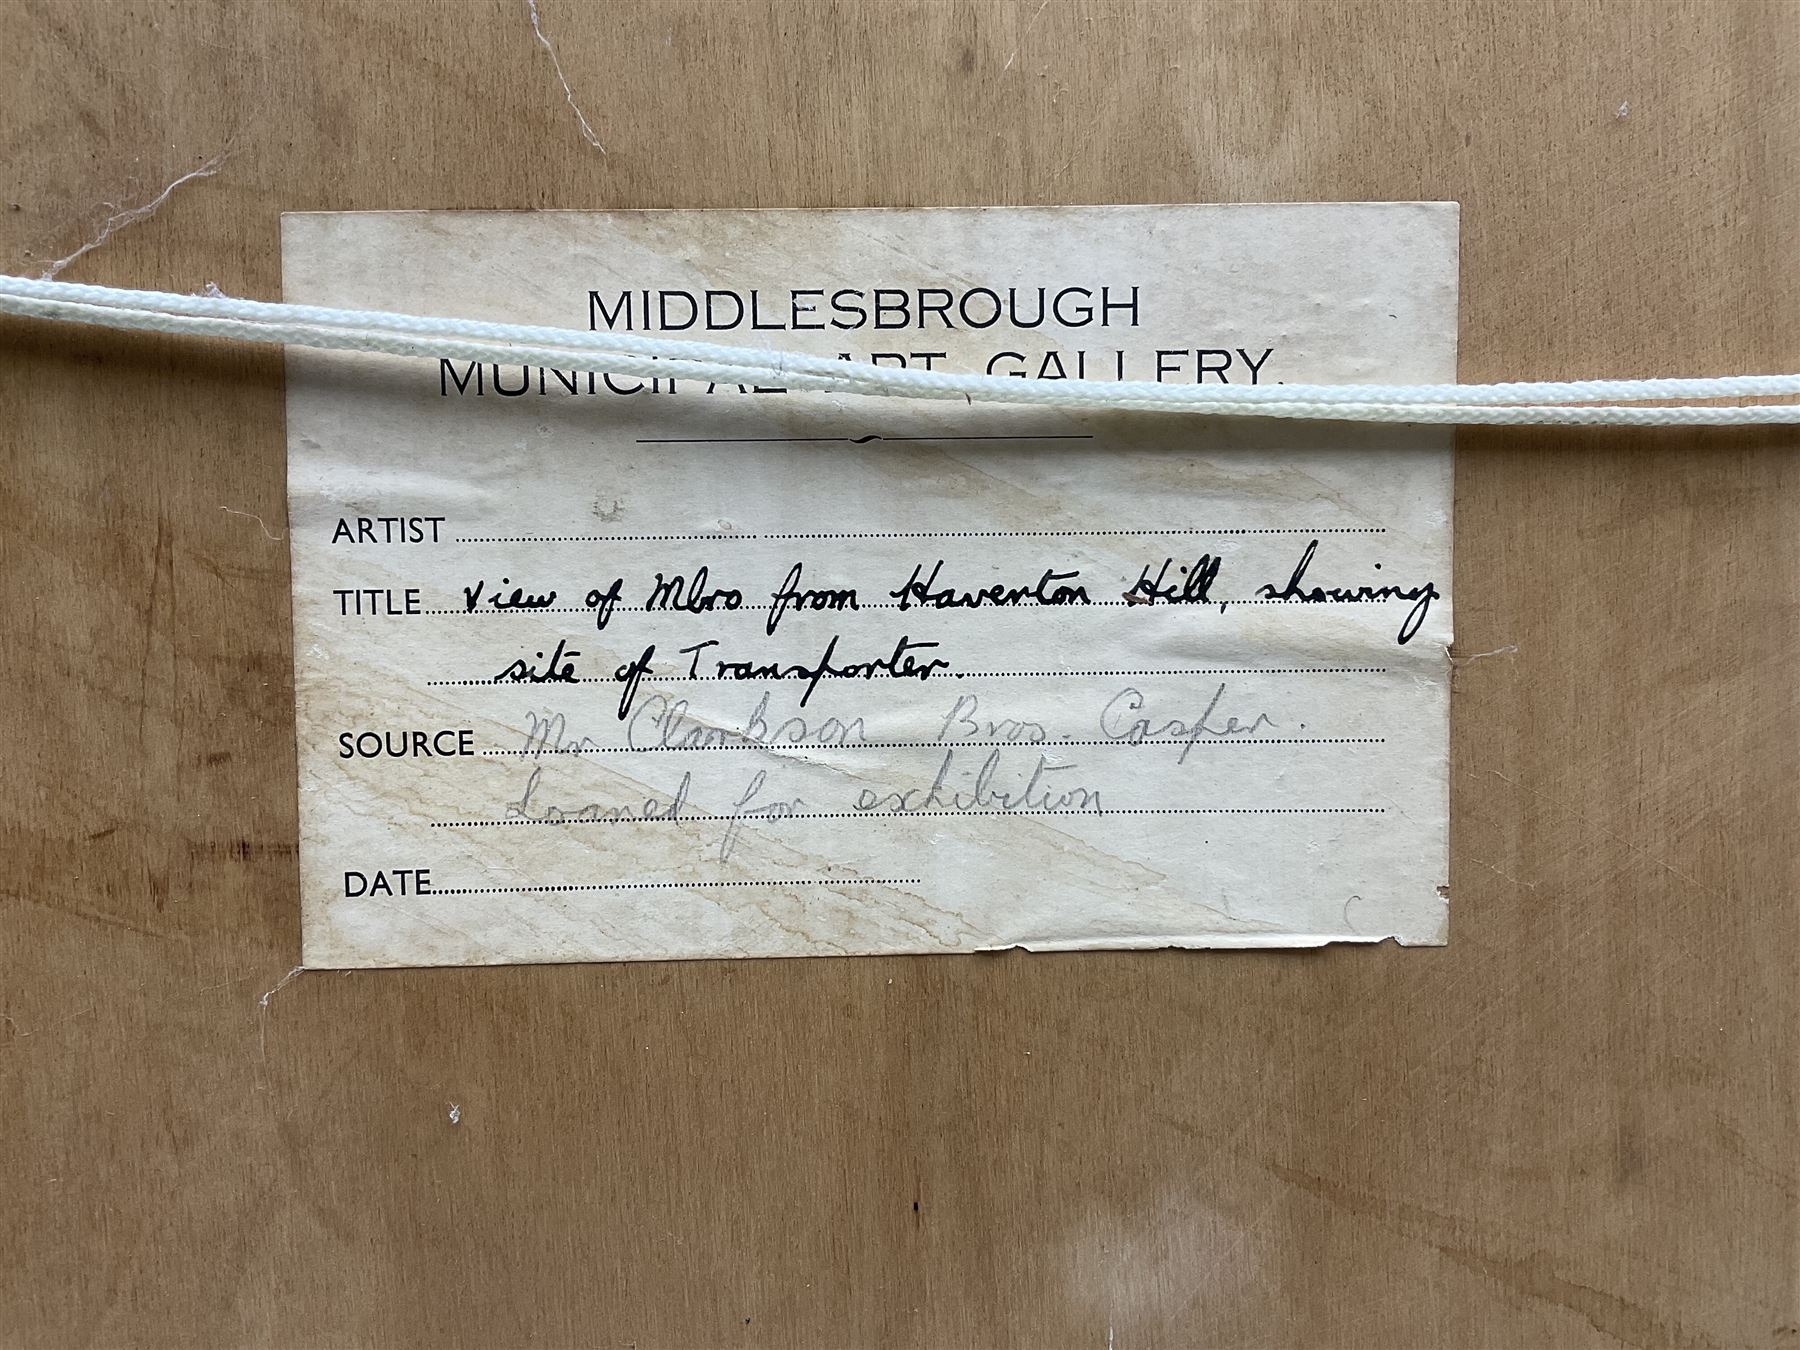 MIDDLESBROUGH
MUNICIPAL ART GALLERY.
ARTIST
TITLE View of Mbro from Haverton Hill, showing
site of Transporter.
SOURCE Mr Clarkson Bros. Casper.
Loaned for exhibition
DATE